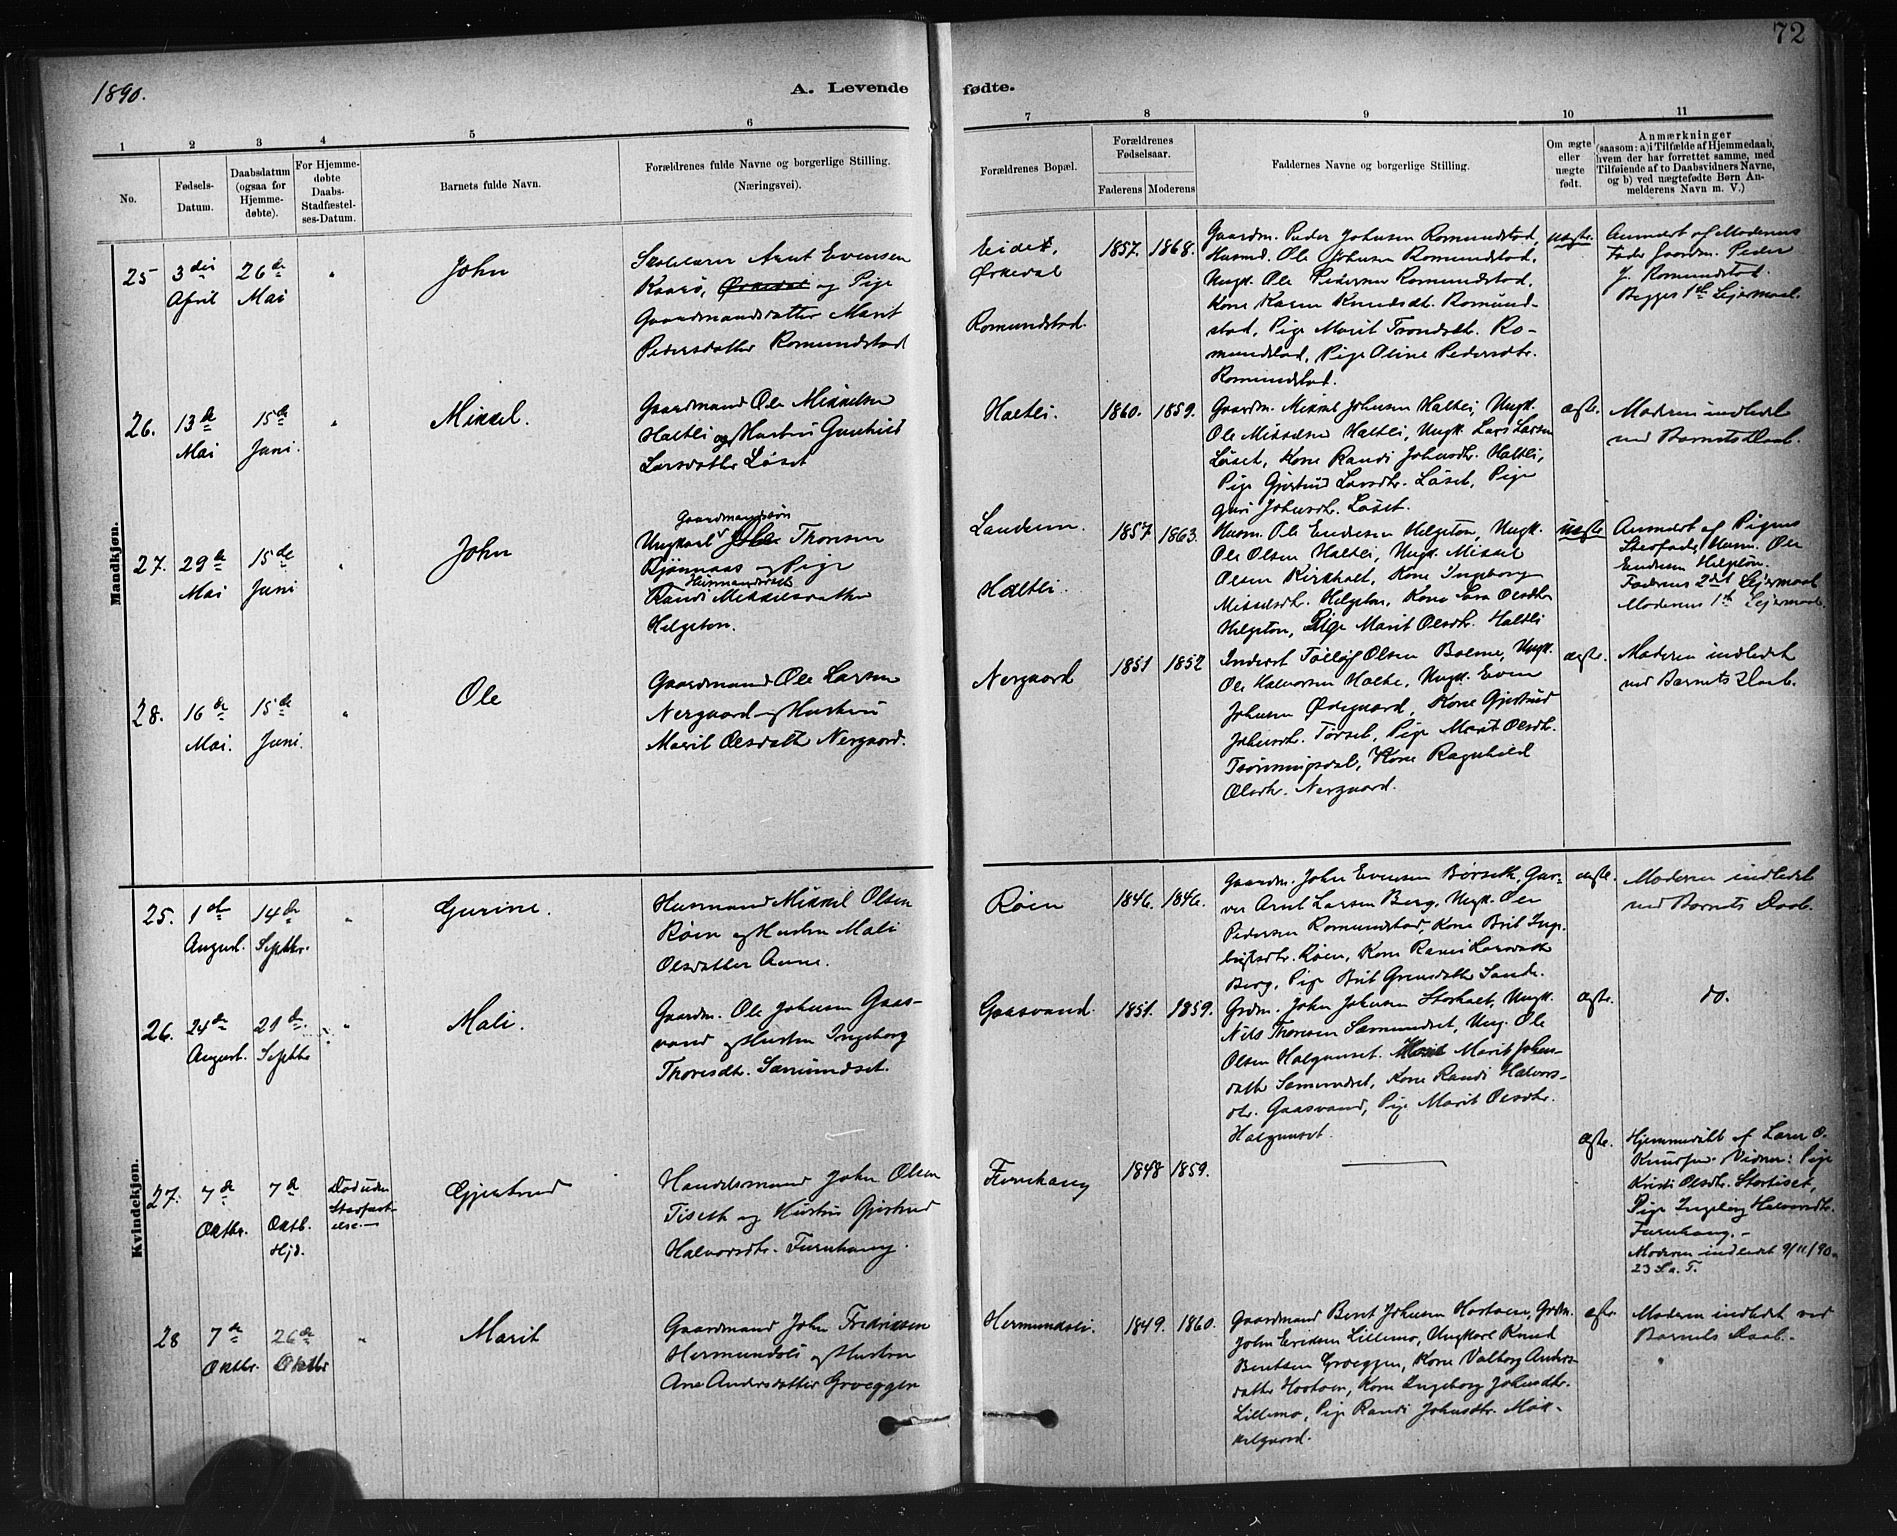 72
1890.
A. Levende fødte.
1 2 3 4 5 6 7 8 9 10 11
No.
Fødsels-Datum.
Daabsdatum (ogsaa for Hjemme-døbte).
For Hjemme-døbte Daabs-Stadfæstel-ses-Datum.
Barnets fulde Navn.
Forældrenes fulde Navne og borgerlige Stilling.
(Næringsvei).
Forældrenes Bopæl.
Forældrenes Fødselsaar.
Faderens Moderens
Faddernes Navne og borgerlige Stilling.
Om ægte eller uægte født.
Anmærkninger
(saasom: a) i Tilfælde af Hjemmedaab,
hvem der har forrettet samme, med
Tilføiende af to Daabsvidners Navne,
og b) ved uægtefødte Børn An-
melderens Navn m. V.)
Mandkjøn.
25 3die April
26de Mai
"
John
Skolelærer Arnt Evensen
Kaarø, Ørkedal og Pige
Gaardmandsdatter Marit
Pedersdatter Romundstad
Eidet,
Ørkedal
Romundstad.
1857. 1868.
Gaardm. Peder Johnsen Romundstad,
Husmd. Ole Johnsen Romundstad,
Ungk. Ole Pedersen Romundstad,
Kone Karen Knudsdt. Romund-
stad, Pige Marit Trondsdtr. Ro-
mundstad, Pige Oline Pedersdtr.
Romundstad.
uægte.
Anmeldt af Moderens
Fader Gaardm. Peder
J. Romundstad.
Begges 1ste Lejermaal.
26. 13de Mai
15de Juni.
"
Mikkel.
Gaardmand Ole Mikkelsen
Haltli og Hustru Gunhild
Larsdatter Løset
Haltli.
1860. 1859.
Gaardm. Mikkel Johnsen Haltli, Ungk.
Ole Mikkelsen Haltli, Ungk. Lars Larsen
Løset, Kone Randi Johnsdtr. Haltli,
Pige Gjertrud Larsdtr. Løset, Pige
Guri Johnsdtr. Løset.
ægte.
Moderen indledet
ved Barnets Daab.
27. 29de Mai
15de Juni
"
John
Gaardmandssøn
Ungkarl Thoresen
Bjørnaas og Pige
Husmandsdatt
Randi Mikkelsdatter
Helgeton.
Haltli.
1857 1863.
Husm. Ole Endresen Helgeton, Ungk.
Ole Olsen Haltli, Ungk. Mikkel
Olsen Kirkholt, Kone Ingeborg
Mikkelsdtr. Helgeton, Kone Sara Olsdtr.
Helgeton, Pige Marit Olsdtr. Haltli
uægte
Anmeldt af Pigens
Stedfader, Husm. Ole
Endresen Helgeton.
Faderens 2det Lejermaal
Moderens 1ste Lejermaal.
28. 16de Mai.
15de Juni.
"
Ole
Gaardmand Ole Larsen
Nergaard og Hustru
Marit Olsdatter Nergaard.
Nergaard
1851 1852
Inderst Tølløf Olsen Bolme, Ungk.
Ole Halvorsen Holte, Ungk. Even
Johnsen Ødegaard, Kone Gjertrud
Johnsdtr. Tørset, Pige Marit Olsdtr.
Trønningsdal, Kone Ragnhild
Olsdtr. Nergaard.
ægte.
Moderen indledet
ved Barnets Daab.
Kvindekjøn.
25. 1ste August.
14de Septbr.
"
Gurine.
Husmand Mikkel Olsen
Røen og Hustru Mali
Olsdatter Aune.
Røen
1846. 1846.
Gaardm. John Evensen Børseth, Gar-
ver Arnt Larsen Berg, Ungk. Ole
Pedersen Romundstad, Kone Brit Inge-
brigtsdtr. Røen, Kone Randi Larsdatter
Berg, Pige Brit Sande.
ægte.
Moderen indledet
ved Barnets Daab.
26. 24de August.
21de Septbr
"
Mali.
Gaardm. Ole Johnsen Gaas-
vand og Hustru Ingeborg
Thoresdtr. Sæmundset.
Gaasvand.
1851. 1859.
Grdm. John Johnsen Storholt, Ungk.
Nils Thoresen Sæmundset, Ung. Ole
Olsen Halgunset. Marit Johns-
datter Sæmundset, Kone Randi Halvors-
dtr. Gaasvand, Pige Marit Olsdtr.
Halgunset.
ægte.
do.
27. 7de Oktbr.
7de Oktb. Hjd.
Død uden
Stadfæst-
else.
Gjertrud
Handelsmand John Olsen
Tiseth og Hustru Gjertrud
Halvorsdtr. Furuhaug.
Furuhaug
1848 1859.
ægte.
Hjemmedøbt af Lærer O.
Knudsen. Vidner: Pige
Kristi Olsdtr. Stortiset,
Pige Ingeborg Halvorsdtr.
Furuhaug.
Moderen indledet 9/11/90.
23 S. a. T.
28 7de Oktbr.
26de Oktbr
"
Marit
Gaardmand John Fredriksen
Hermundsli og Hustru
Ane Andersdatter Groeggen
Hermundsli.
1849. 1860.
Gaardmand Bernt Johnsen Hostoen, Grdm.
John Eriksen Lillemo, Ungkarl Knud
Berntsen Groeggen, Kone Valborg Anders-
datter Hostoen, Kone Ingeborg Johnsdtr.
Lillemo, Pige Randi Johnsdtr. Mek-
kelgaard.
ægte.
Moderen indledet ved
Barnets Daab.